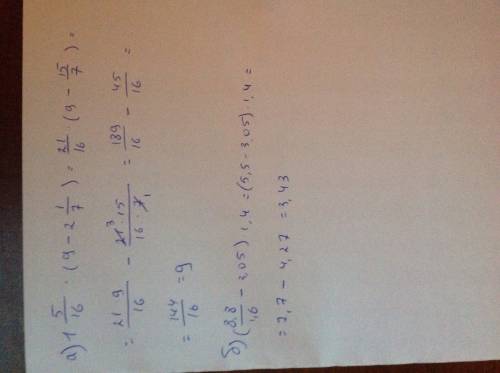 а) 1 5/16 · (9 - 2 1/7) = 21/16 (9 - 15/7) =
= 21·9/16 - 21³·15/16·7₁ = 189/16 - 45/16 =
= 144/16 = 9
б) (8,8/1,6 - 3,05) · 1,4 = (5,5 - 3,05) · 1,4 =
= 7,7 - 4,27 = 3,43